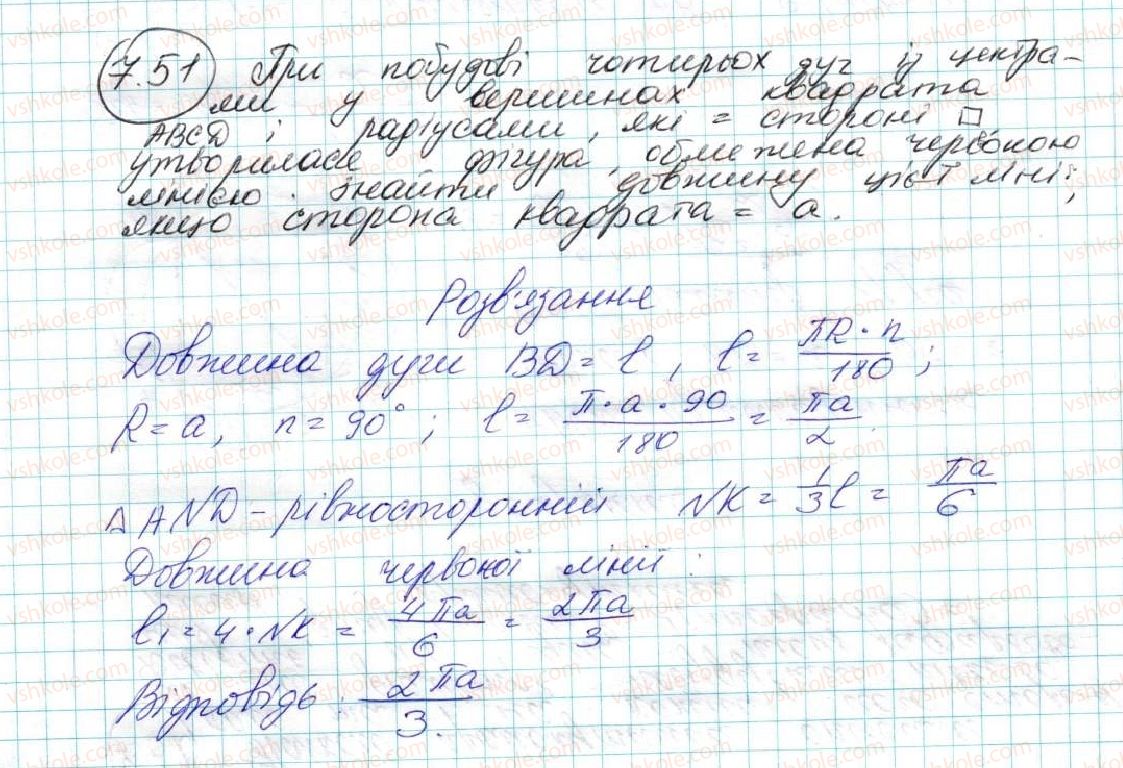 7.51 При побудові чотирьох дуг із центра-
ми у вершинах квадрата
ABCD і радіусами, які = стороні □
утворилася фігура, обмежена червоною
лінією. Знайти довжину цієї лінії,
якщо сторона квадрата = a.
Розв'язання
Довжина дуги BD = l, l = πR·n/180;
R = a, n = 90°; l = π·a·90/180 = πa/2.
△AND - рівносторонній NK = 1/3 l = πa/6
Довжина червоної лінії:
l₁ = 4·NK = 4πa/6 = 2πa/3
Відповідь: 2πa/3.